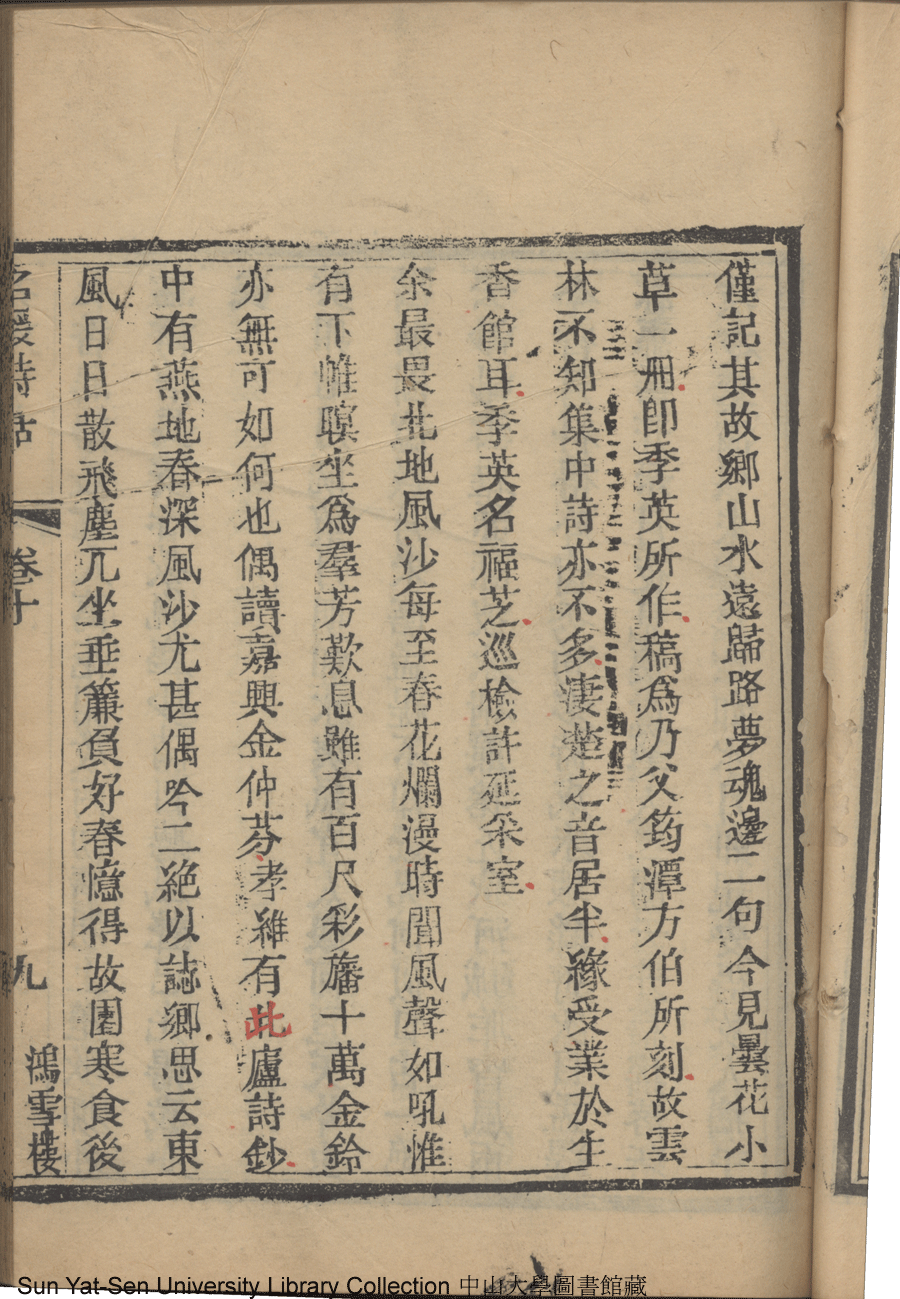 僅記其故鄉山水遠歸路夢魂邊二句今見曇花小
草一冊卽季英所作稿爲乃父筠潭方伯所刻故雲
林不知集中詩亦不多淒楚之音居半緣受業於生
香館耳季英名福芝巡檢許延宷室
余最畏北地風沙每至春花爛漫時聞風聲如吼惟
有下帷瞑坐爲羣芳歎息雖有百尺彩旛十萬金鈴
亦無可如何也偶讀嘉興金仲芬孝維有此廬詩鈔
中有燕地春深風沙尤甚偶吟二絶以誌鄉思云東
風日日散飛塵兀坐垂簾負好春憶得故園寒食後
名媛詩話
卷十
九
鴻雪樓
Sun Yat-Sen University Library Collection 中山大學圖書館藏